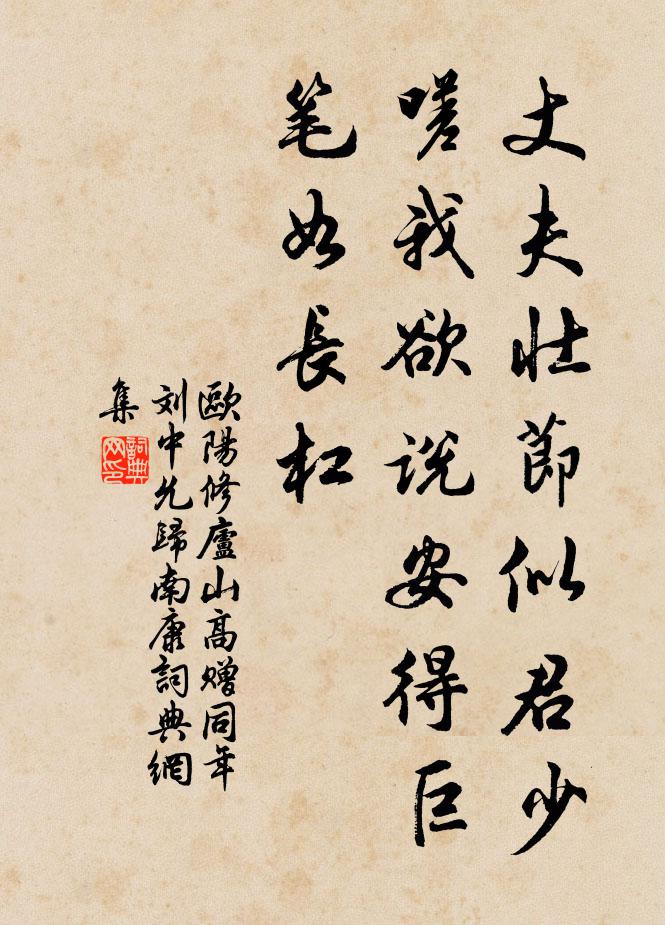 丈夫壮節似君少
嗟我欲説安得巨
笔如長杠
歐陽修廬山高赠同年
刘中允歸南康詞典網
集
詞典
网印